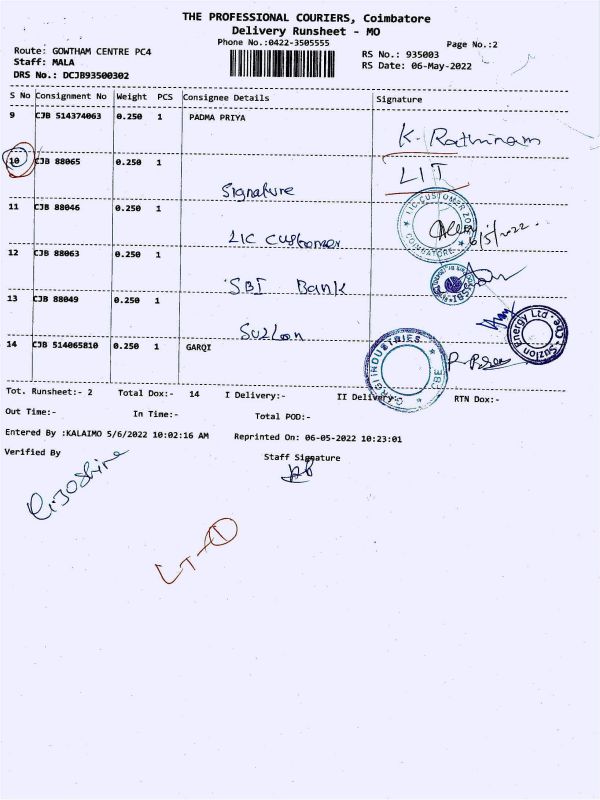 THE PROFESSIONAL COURIERS, Coimbatore
Delivery Runsheet - MO
Phone No.:0422-3505555
Page No.:2
Route: GOWTHAM CENTRE PC4
Staff: MALA
DRS No.: DCJB93500302
RS No.: 935003
RS Date: 06-May-2022
S No Consignment No Weight PCS Consignee Details Signature
9 CJB 514374063 0.250 1 PADMA PRIYA K. Rathinam
10 CJB 88065 0.250 1 Signature LIT
11 CJB 88046 0.250 1 LIC Customer 6/5/2022.
LIC CUSTOMER ZO
COIMBATORE
12 CJB 88063 0.250 1 SBI Bank
13 CJB 88049 0.250 1 Suzlon
Suzlon Energy Ltd. Cbe.
14 CJB 514065810 0.250 1 GARQI
INDUSTRIES
CBE
Tot. Runsheet:- 2 Total Dox:- 14 I Delivery:- II Delivery:- RTN Dox:-
Out Time:- In Time:- Total POD:-
Entered By :KALAIMO 5/6/2022 10:02:16 AM Reprinted On: 06-05-2022 10:23:01
Verified By Staff Signature